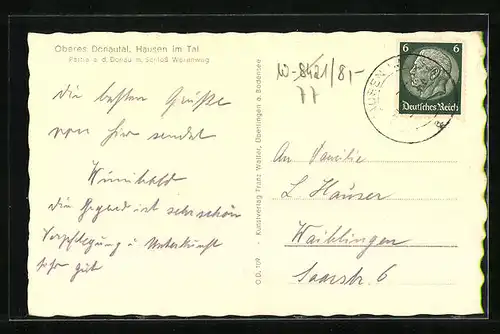 Oberes Donautal, Hausen im Tal
Partie a. d. Donau m. Schloß Werenwag
W-8421/81-
77
6 6
Deutsches Reich
HAUSEN
die besten Grüße
von hier sendet
Wunibald
die Gegend ist sehr schön
Verpflegung u Unterkunft
sehr gut
O.D. 109 - Kunstverlag Franz Walter, Überlingen a. Bodensee
An Familie
L Hauser
Waiblingen
Saarstr. 6